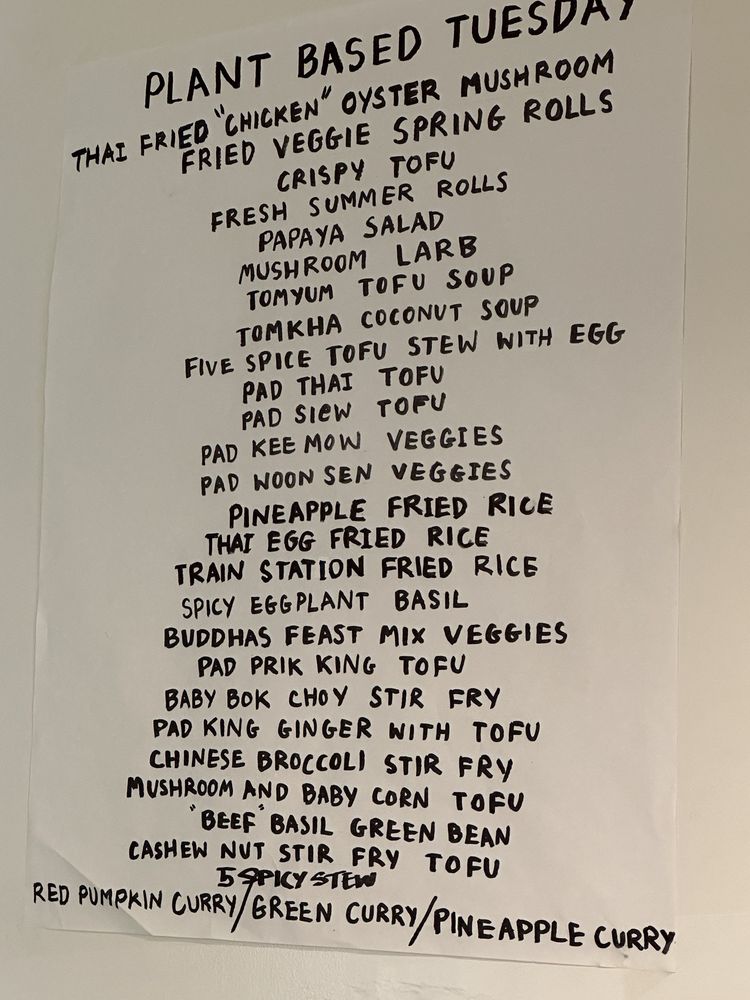 PLANT BASED TUESDAY
THAI FRIED "CHICKEN" OYSTER MUSHROOM
FRIED VEGGIE SPRING ROLLS
CRISPY TOFU
FRESH SUMMER ROLLS
PAPAYA SALAD
MUSHROOM LARB
TOMYUM TOFU SOUP
TOMKHA COCONUT SOUP
FIVE SPICE TOFU STEW WITH EGG
PAD THAI TOFU
PAD SIEW TOFU
PAD KEE MOW VEGGIES
PAD WOON SEN VEGGIES
PINEAPPLE FRIED RICE
THAI EGG FRIED RICE
TRAIN STATION FRIED RICE
SPICY EGGPLANT BASIL
BUDDHAS FEAST MIX VEGGIES
PAD PRIK KING TOFU
BABY BOK CHOY STIR FRY
PAD KING GINGER WITH TOFU
CHINESE BROCCOLI STIR FRY
MUSHROOM AND BABY CORN TOFU
"BEEF" BASIL GREEN BEAN
CASHEW NUT STIR FRY TOFU
5 SPICY STEW
RED PUMPKIN CURRY/GREEN CURRY/PINEAPPLE CURRY